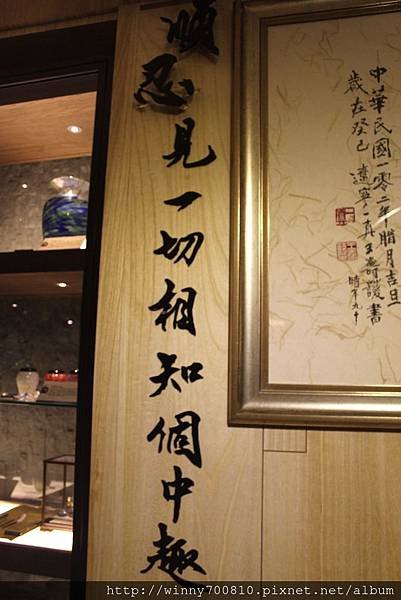 中華民國一零二年臘月吉旦
歲在癸巳 遼寧一真王壽書
時年九十
順忍見一切相知個中趣
http://winny700810.pixnet.net/album